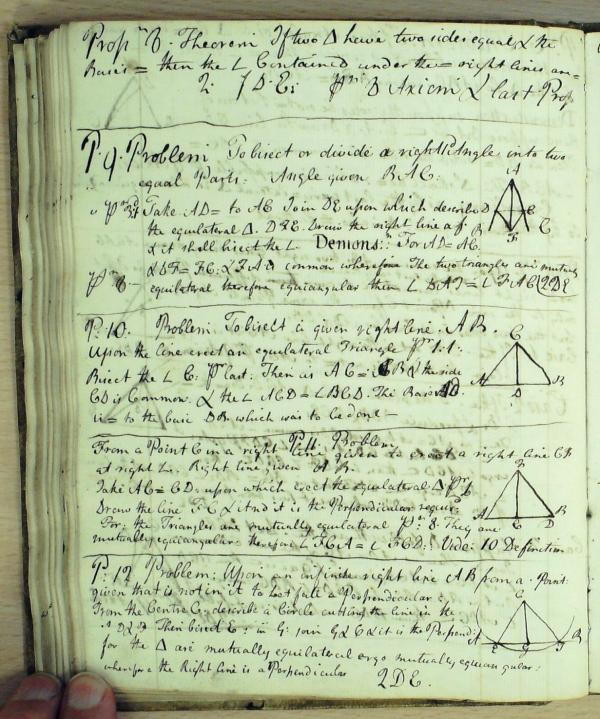 Prop.n 8. Theorem If two Δ have two sides equal & the
Basis = then the L Contained under the = right lines are =
2: D: E: Pr 8 Axiom & last Prop
P. 9. Problem To bisect or divide a right lined Angle into two
equal Parts. Angle given BAC:
Take AD = to AE Join DE upon which described
the equilateral Δ. DFE. Draw the right line AF
& it shall bisect the L. Demons:n For AD = AE.
& DF = FE: & FA is common wherefore The two triangles are mutualy
Pr 8 equilateral therefore equiangular then L DAF = L FAE QDE
P: 10. Problem To bisect a given right line. AB.
Upon the line erect an equilateral Triangle Pr 1:1:
Bisect the L C: Pr last: Then is AC = CB & the side
CD is Common. & the L ACD = LBCD. The Base AD
is = to the base DB which was to be done —
P 11. Problem
From a Point C in a right line given to erect a right line CF
at right Ls. Right line given A B.
Take AC = CD: upon which erect the equilateral Δ
Draw the line FC & it is the Perpendicular requir:
For: the Triangles are mutually equilateral Pr: 8. They are
mutually equiangular: therefore L FCA = L FCD: Vide: 10 Definition
P: 12 Problem: Upon an infinite right line AB from a Point:
given that is not in it to Let fall a Perpendicular:
From the Centre C: describe a Circle cutting the line in the
Then bisect E: in G: join G & C & it is the Perpendi
for the Δ are mutually equilateral ergo mutually equiangular:
wherefore the Right line is a Perpendicular QDE.